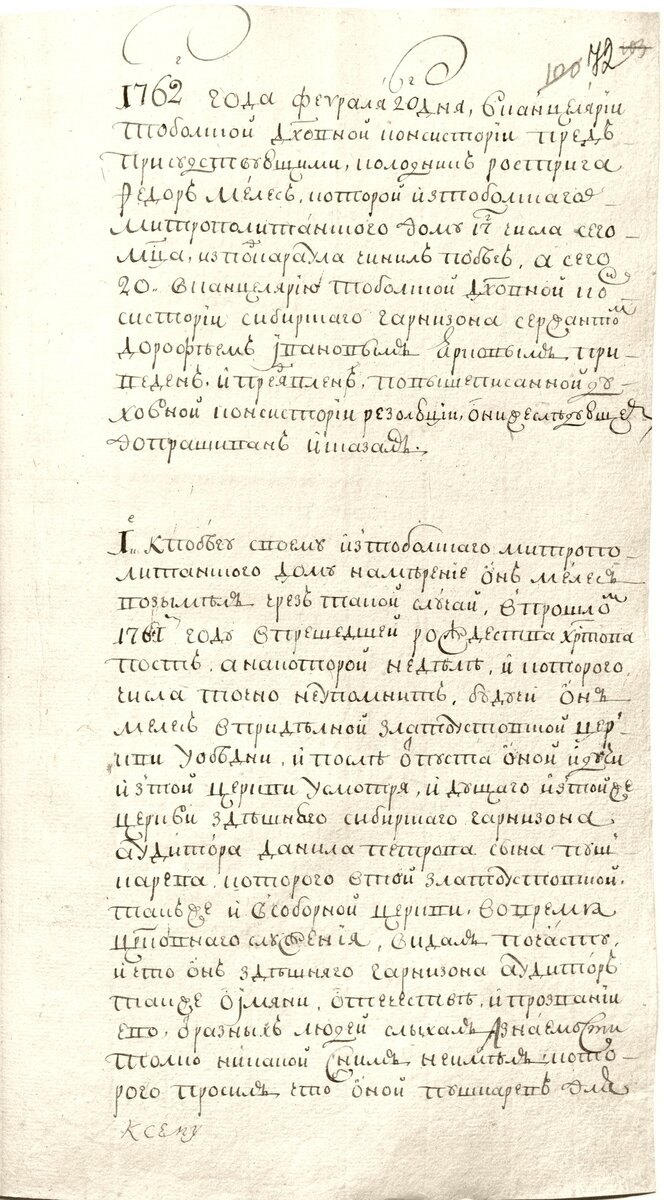 100 72 103
1762 года февраля 20 дня, в канцелярїи
тоболской дховной консисторїи предъ
присудствующими, колодникъ рострига
Федоръ Мелесъ, которой изтоболскаго
митрополитанского дому 17 числа сего
мца, испод караула чинилъ побегъ, а сего
20. в канцелярїю тоболской дховной кон
систорїи сибирского гарнизона сержантом
дорофѣемъ ївановымъ приведенъ, и
по вышеписанной ду
ховной консисторїи резолюцїи, онижеслѣдующем
допрашиванъ и сказалъ.
1е. Кпобѣгу своему изтоболского митропо
литанского дому намѣренїе онъ мелесъ
возымѣлъ чрезъ такой случай, впрошлом
1761 году впрешедшей рождества христова
постъ, а накоторой недѣлѣ, и которого
числа точно неупомнитъ, будучи онъ
мелесъ впридѣлной златоустовской цер
кви уобѣдни, и послѣ отпуста оной идучи
изтой церкви усмотря, идущаго изтой же
церкви здѣшняго сибирского гарнизона
аудитора данила петрова сына пуш
карева, которого втой златоустовской
также и всоборной церкви, вовремя
црковнаго служенїя, видалъ почасту,
и что онъ здѣшняго гарнизона аудиторъ
также оимяни, отечествѣ, и прозванїи
ево, отразныхъ людей слыхалъ, азнаемости
толко никакой снимъ неимѣлъ, кото
рого просилъ что оной пушкаревъ для
ксему